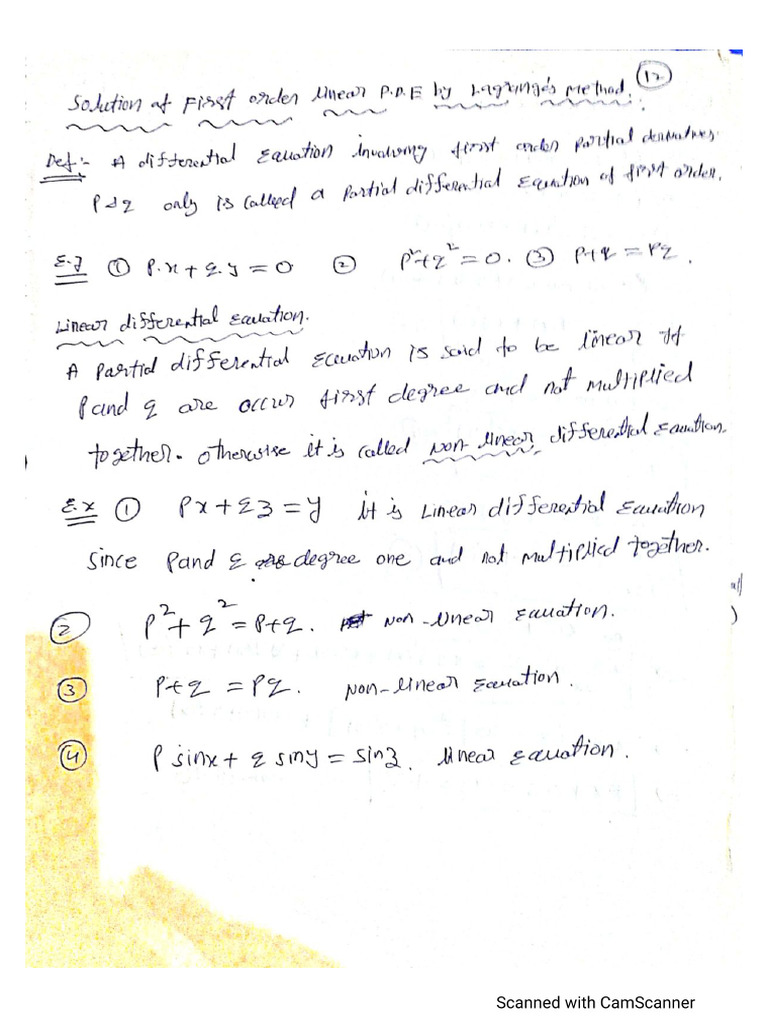 Solution of First order linear P.D.E by Lagrange's Method. (12)
Def:- A differential Equation involving first order partial derivatives
p & q only is called a partial differential Equation of first order.
E.g ① p.x + q.y = 0 ② p² + q² = 0. ③ p + q = pq.
Linear differential Equation.
A partial differential Equation is said to be linear if
p and q are occur first degree and not multiplied
together. otherwise it is called non-linear differential Equation.
E.x ① px + qz = y it is Linear differential Equation
since p and q are degree one and not multiplied together.
② p² + q² = p + q. Non-linear Equation.
③ p + q = pq. Non-linear Equation.
④ p sinx + q siny = sinz. linear Equation.
Scanned with CamScanner